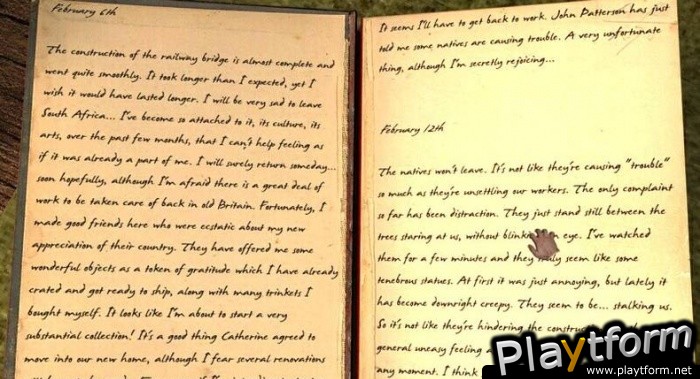 February 6th
The construction of the railway bridge is almost complete and
went quite smoothly. It took longer than I expected, yet I
wish it would have lasted longer. I will be very sad to leave
South Africa... I've become so attached to it, its culture, its
arts, over the past few months, that I can't help feeling as
if it was already a part of me. I will surely return someday...
soon hopefully, although I'm afraid there is a great deal of
work to be taken care of back in old Britain. Fortunately, I
made good friends here who were ecstatic about my new
appreciation of their country. They have offered me some
wonderful objects as a token of gratitude which I have already
crated and got ready to ship, along with many trinkets I
bought myself. It looks like I'm about to start a very
substantial collection! It's a good thing Catherine agreed to
move into our new home, although I fear several renovations
It seems I'll have to get back to work. John Patterson has just
told me some natives are causing trouble. A very unfortunate
thing, although I'm secretly rejoicing...
February 12th
The natives won't leave. It's not like they're causing "trouble"
so much as they're unsettling our workers. The only complaint
so far has been distraction. They just stand still between the
trees staring at us, without eye. I've watched
them for a few minutes and they seem like some
tenebrous statues. At first it was just annoying, but lately it
has become downright creepy. They seem to be... stalking us.
So it's not like they're hindering the
general uneasy feeling
any moment. I think
Playtform
www.playtform.net